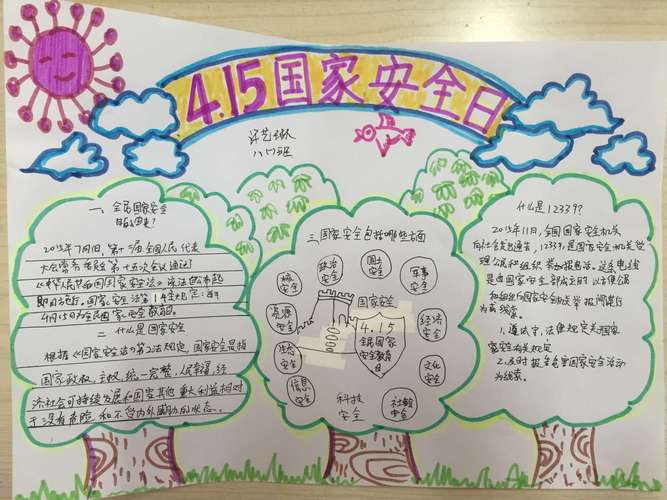 4.15国家安全日
一、全民国家安全
日的由来?
2015年7月1日,第十二届全国人民代表
大会常务委员会第十五次会议通过
《中华人民共和国国家安全法》该法自公布起
即日施行。国家安全法第14条规定:每年
4月15日为全民国家安全教育日。
二、什么是国家安全
根据《国家安全法》第2法规定,国家安全是指
国家政权、主权、统一完整、人民幸福、经
济社会可持续发展和国家其他重大利益相对
于没有危险、和不受内外威胁的状态。
三、国家安全包括哪些方面
核安全
政治安全
国土安全
军事安全
资源安全
国家安全
经济安全
4.15
全民国家
安全教育
日
生态安全
文化安全
信息安全
科技安全
社会安全
什么是12339?
2015年11月,全国国家安全机关
向社会发布通告,12339是国家安全机关受
理公民和组织举报电话。这条电话
是由国家安全部设立的,以方便公
和组织向国家安全机关举报间谍行
为或线索。
1、遵纪守法律规定关于国
家安全有关规定
2、及时报告危害国家安全活动
为线索。